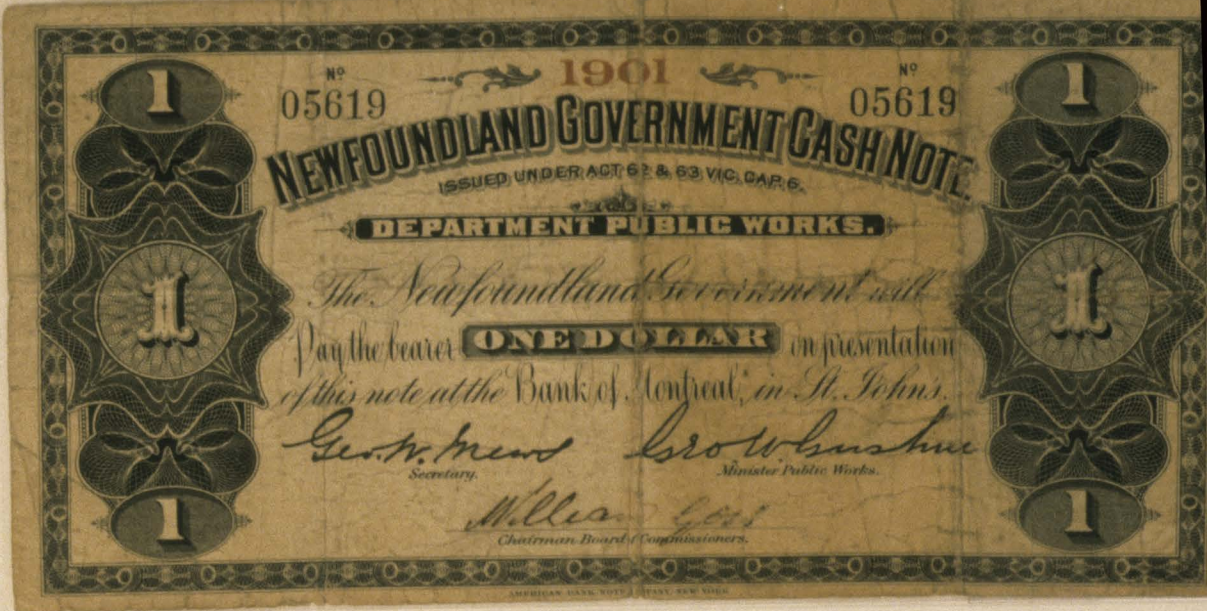 1 1901 1
Nº Nº
05619 05619
NEWFOUNDLAND GOVERNMENT CASH NOTE.
ISSUED UNDER ACT 62 & 63 VIC. CAP. 6.
DEPARTMENT PUBLIC WORKS.
The Newfoundland Government will
1 Pay the bearer ONE DOLLAR on presentation 1
of this note at the Bank of Montreal, in St. John's.
Geo. W. Mews Geo W Gushue
Secretary. Minister Public Works.
1 William 1
Chairman Board of Commissioners.
AMERICAN BANK NOTE COMPANY, NEW YORK.